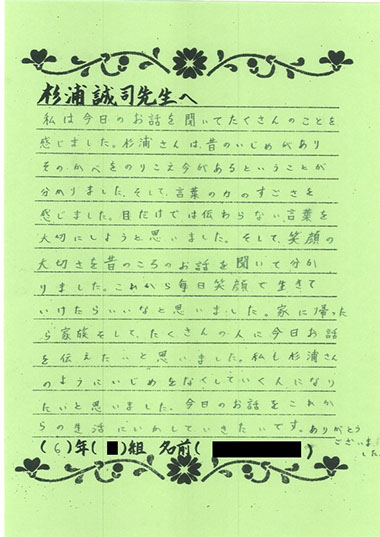 杉浦誠司先生へ
私は今日のお話を聞いてたくさんのことを
感じました。杉浦さんは、昔のいじめがあり
そのかべをのりこえ今があるということが
分かりました、そして、言葉の力のすごさを
感じました。目だけでは伝わらない言葉を
大切にしようと思いました。そして、笑顔の
大切さを昔のころのお話を聞いて分か
りました。これから毎日笑顔で生きて
いけたらいいなと思いました。家に帰った
ら家族そして、たくさんの人に今日お話
を伝えたいと思いました。私も杉浦さん
のようにいじめをなくしていく人になり
たいと思いました、今日のお話をこれか
らの生活にいかしていきたいです。ありがとう
ございま
した。
(6)年( )組 名前( )